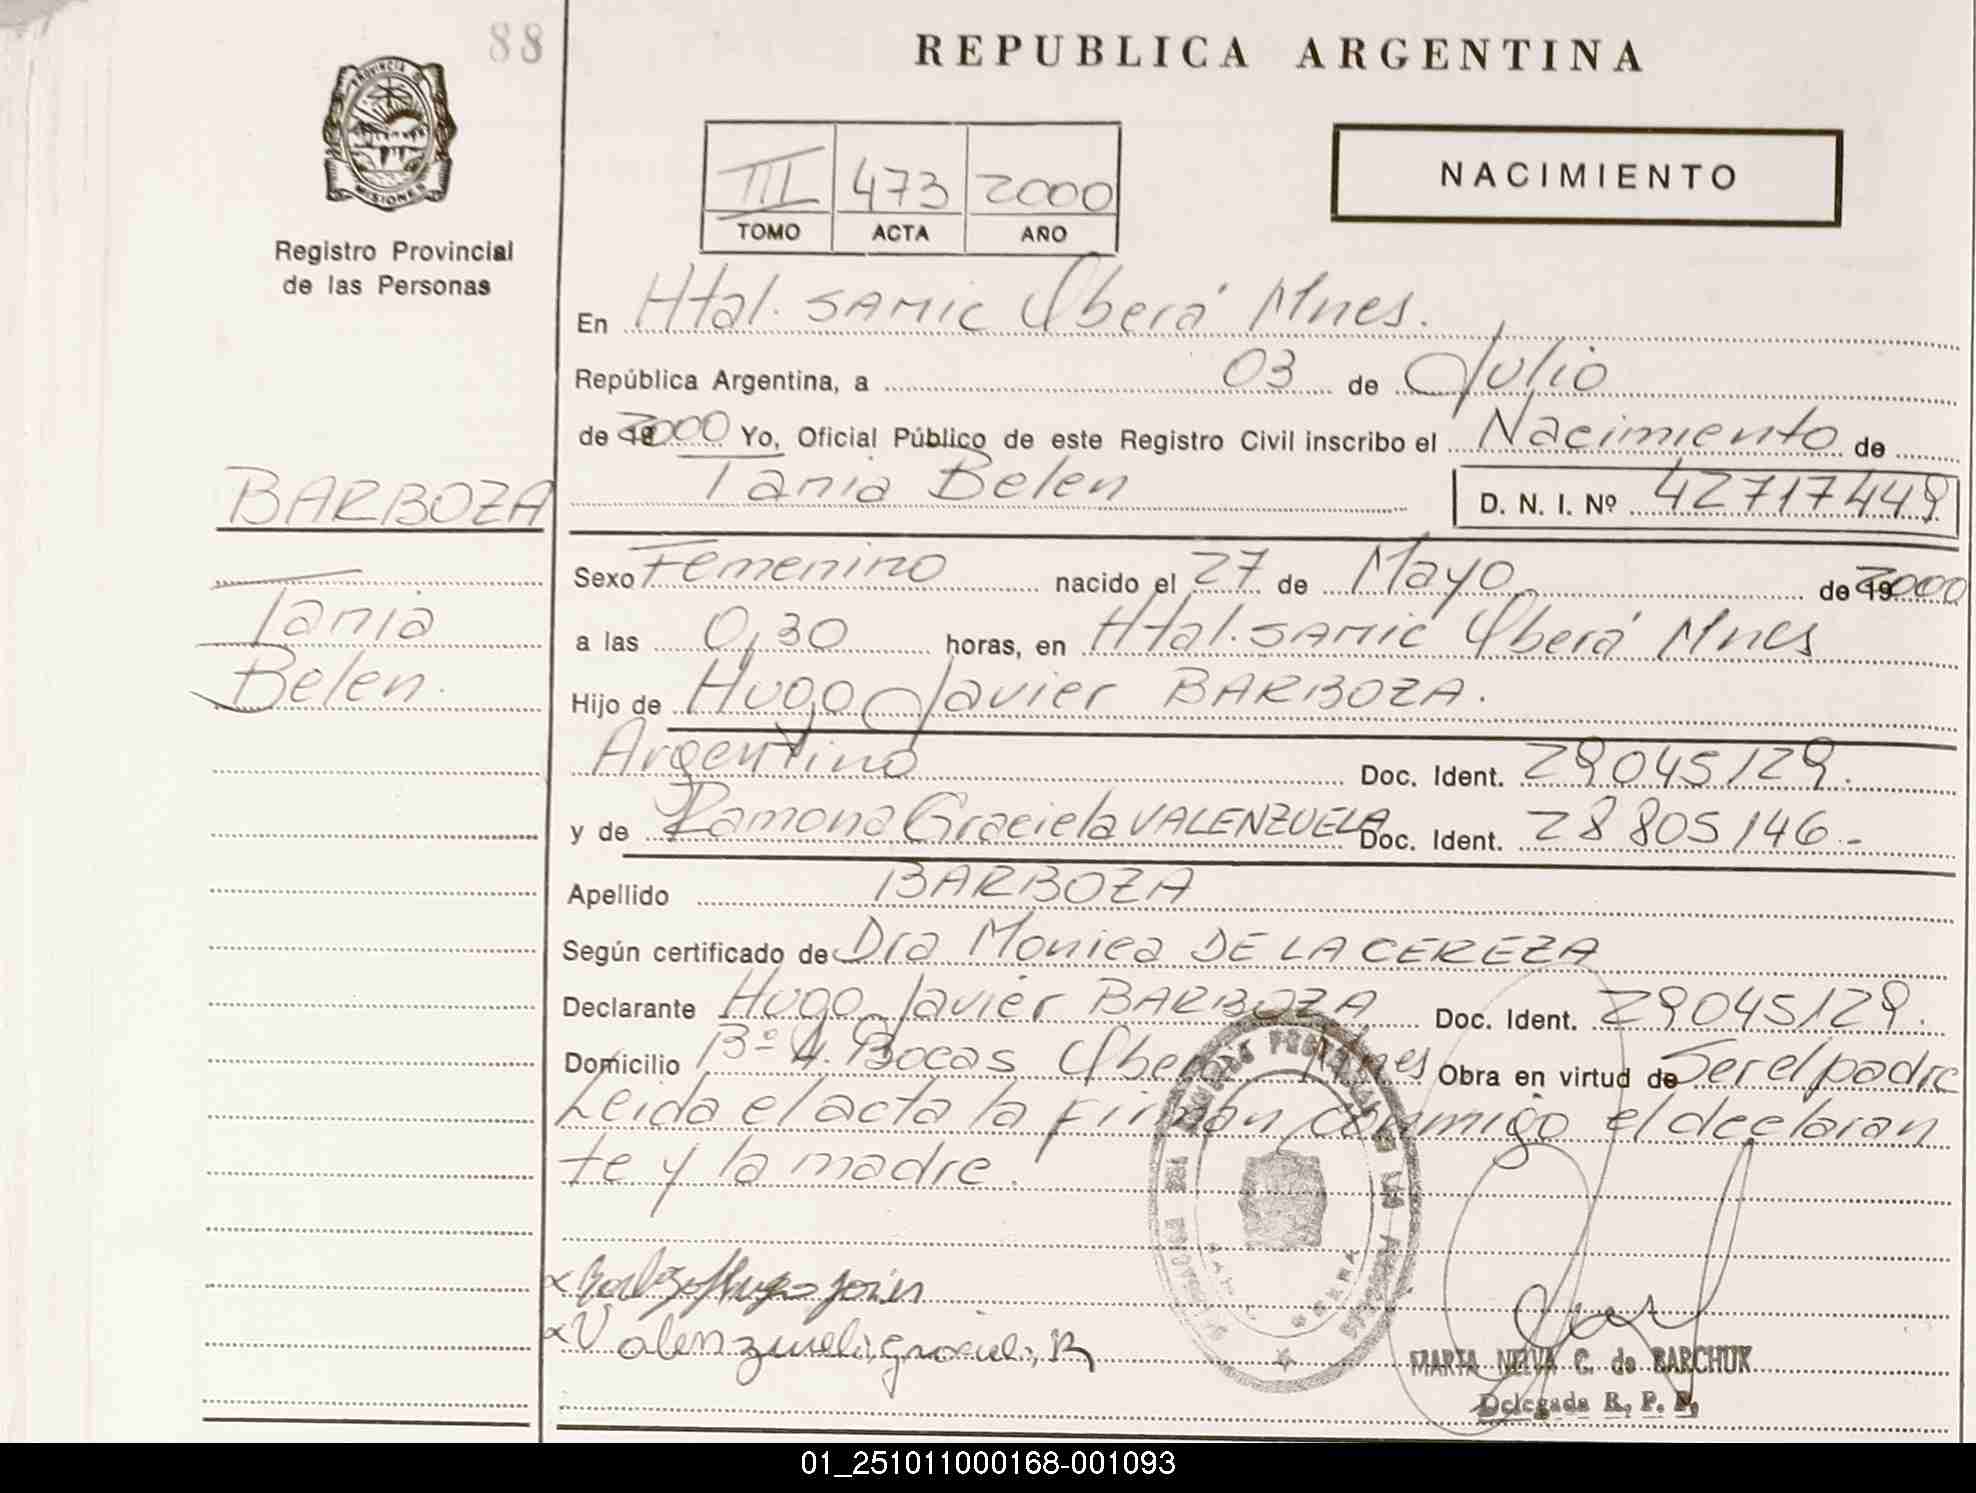 88
REPUBLICA ARGENTINA
PROVINCIA DE
MISIONES
Registro Provincial
de las Personas
III 473 2000
TOMO ACTA AÑO
NACIMIENTO
En Htal. SAMIC Oberá Mnes.
República Argentina, a 03 de Julio
de 2000 Yo, Oficial Público de este Registro Civil inscribo el Nacimiento de
Tania Belen
D. N. I. Nº 42717449
BARBOZA
Tania
Belen.
Sexo Femenino nacido el 27 de Mayo de 2000
a las 0,30 horas, en Htal. SAMIC Oberá Mnes
Hijo de Hugo Javier BARBOZA.
Argentino Doc. Ident. 29045129.
y de Ramona Graciela VALENZUELA Doc. Ident. 28805146.-
Apellido BARBOZA
Según certificado de Dra Monica DE LA CEREZA
Declarante Hugo Javier BARBOZA Doc. Ident. 29045129.
Domicilio Bº 4. Bocas Mnes Obra en virtud de Ser el padre
Leida el acta la firman conmigo el declaran
te y la madre.
Valenzuela, R
MARTA NELVA C. de BARCHUK
Delegada R. P. P.
01_251011000168-001093